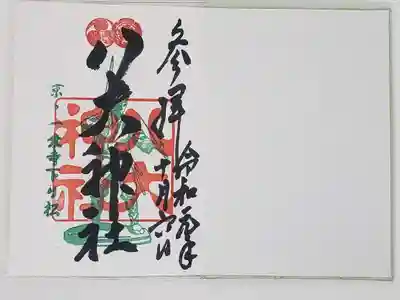 參拝
令和
十月六日
八大神社
京・一乗寺下り松
八大神社